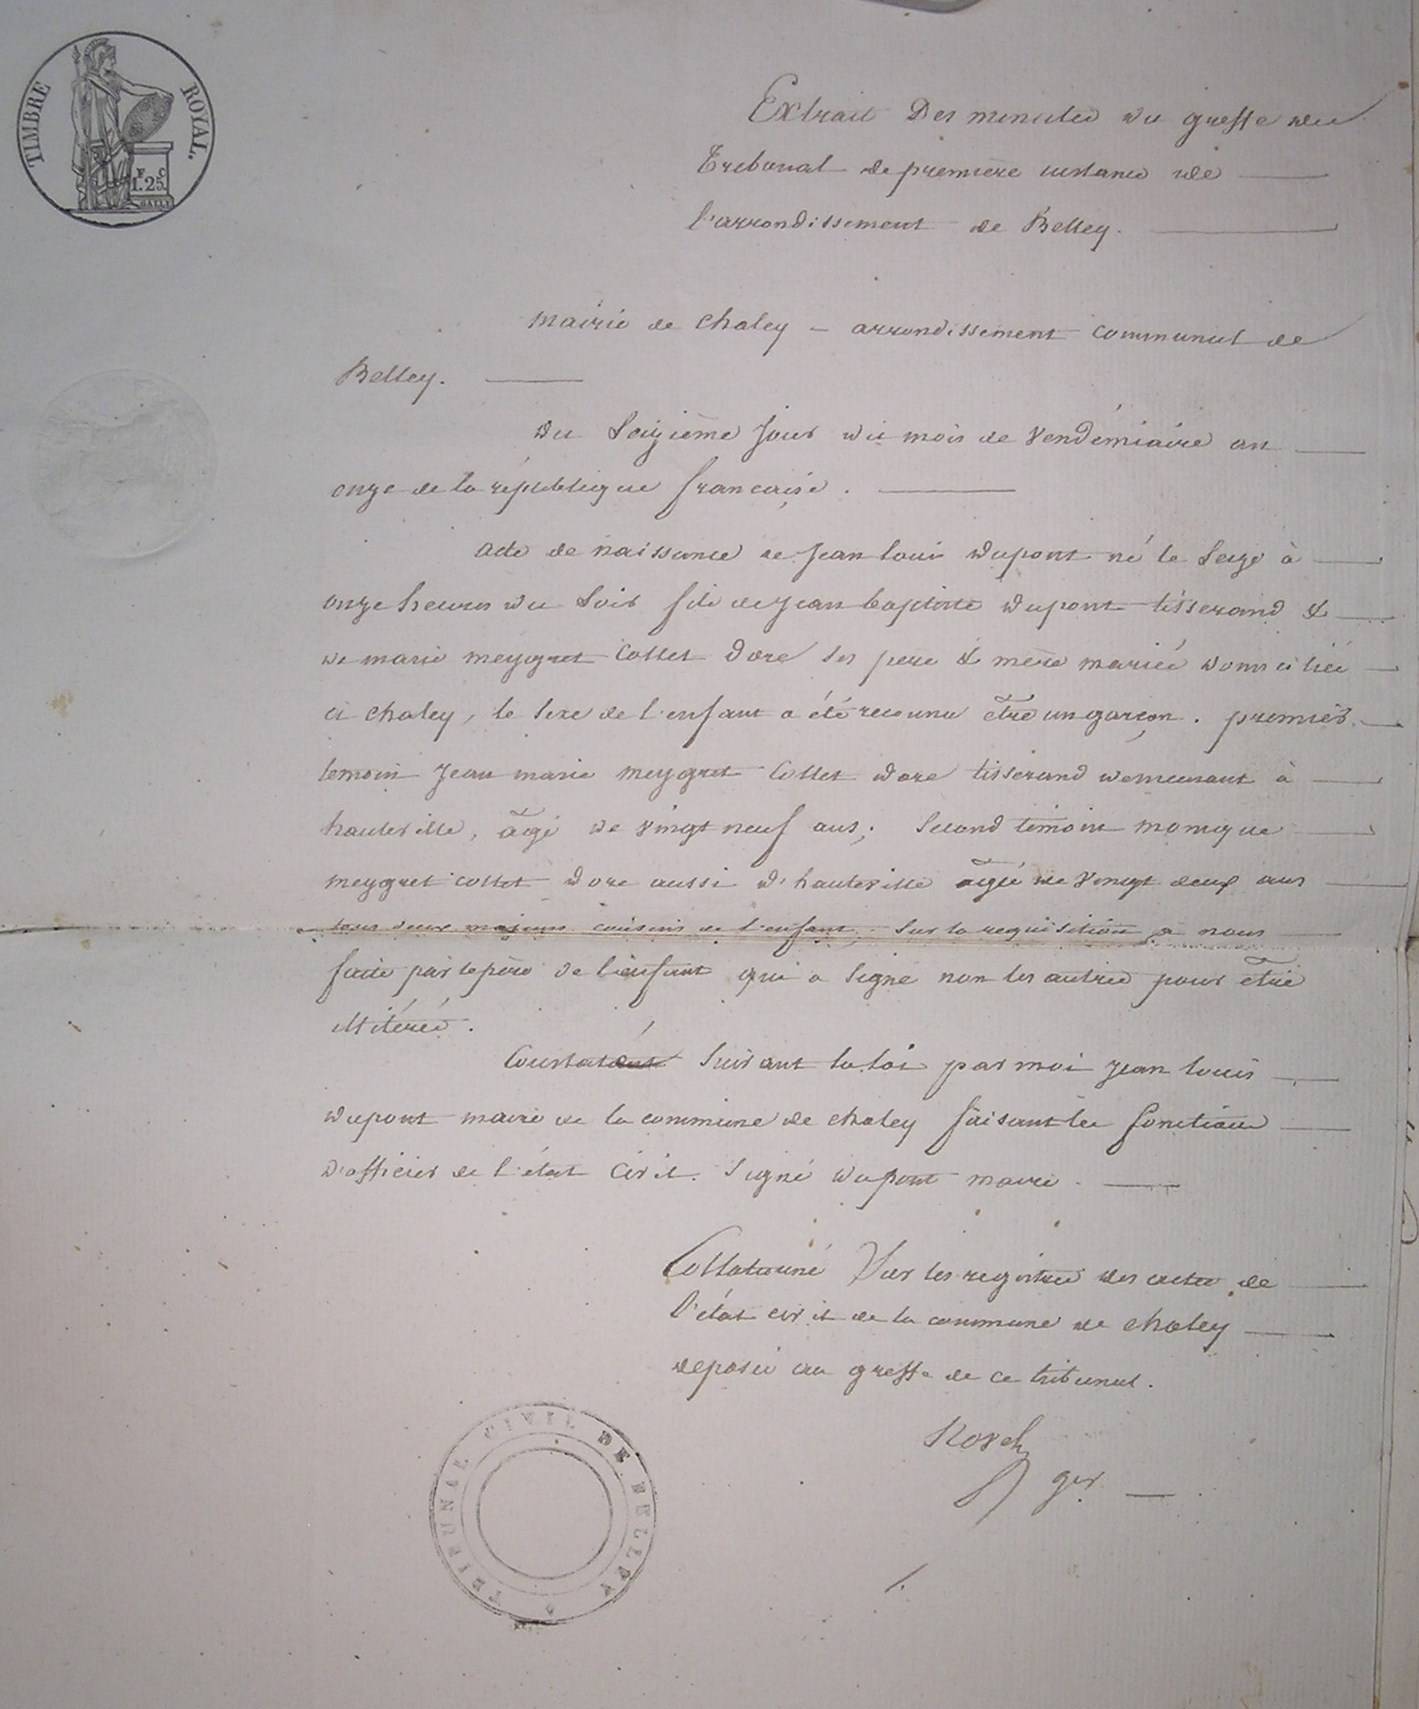 TIMBRE ROYAL.
F C
1.25
Extrait Des minutes du greffe du
Tribunal de première instance de
l'arrondissement de Belley.
Mairie de Chaley - arrondissement communal de
Belley.
Du Seizième jour du mois de vendémiaire an
onze de la république française.
acte de naissance de Jean Louis Dupont né le Seize à
onze heures du Soir fils de Jean baptiste Dupont tisserand &
de marie meygret Collet Dore ses pere & mère mariés domiciliés
à Chaley, le Sexe de l'enfant a été reconnu être un garçon. premier
temoin Jean marie meygret Collet dore tisserand demeurant à
hauteville, âgé de vingt neuf ans; Second témoin monique
meygret collet Dore aussi d'hauteville âgée de vingt deux ans
tous deux majeurs cousins de l'enfant; Sur la requisition à nous
faite par le père de l'enfant qui a Signé non les autres pour être
illitérés.
Constaté Suivant la loi par moi Jean Louis
Dupont maire de la commune de Chaley faisant les fonctions
d'officier de l'état Civil. Signé Dupont maire.
Collationné Sur les registres des actes de
l'état civil de la commune de Chaley
déposés au greffe de ce tribunal.
ger
TRIBUNAL CIVIL DE BELLEY